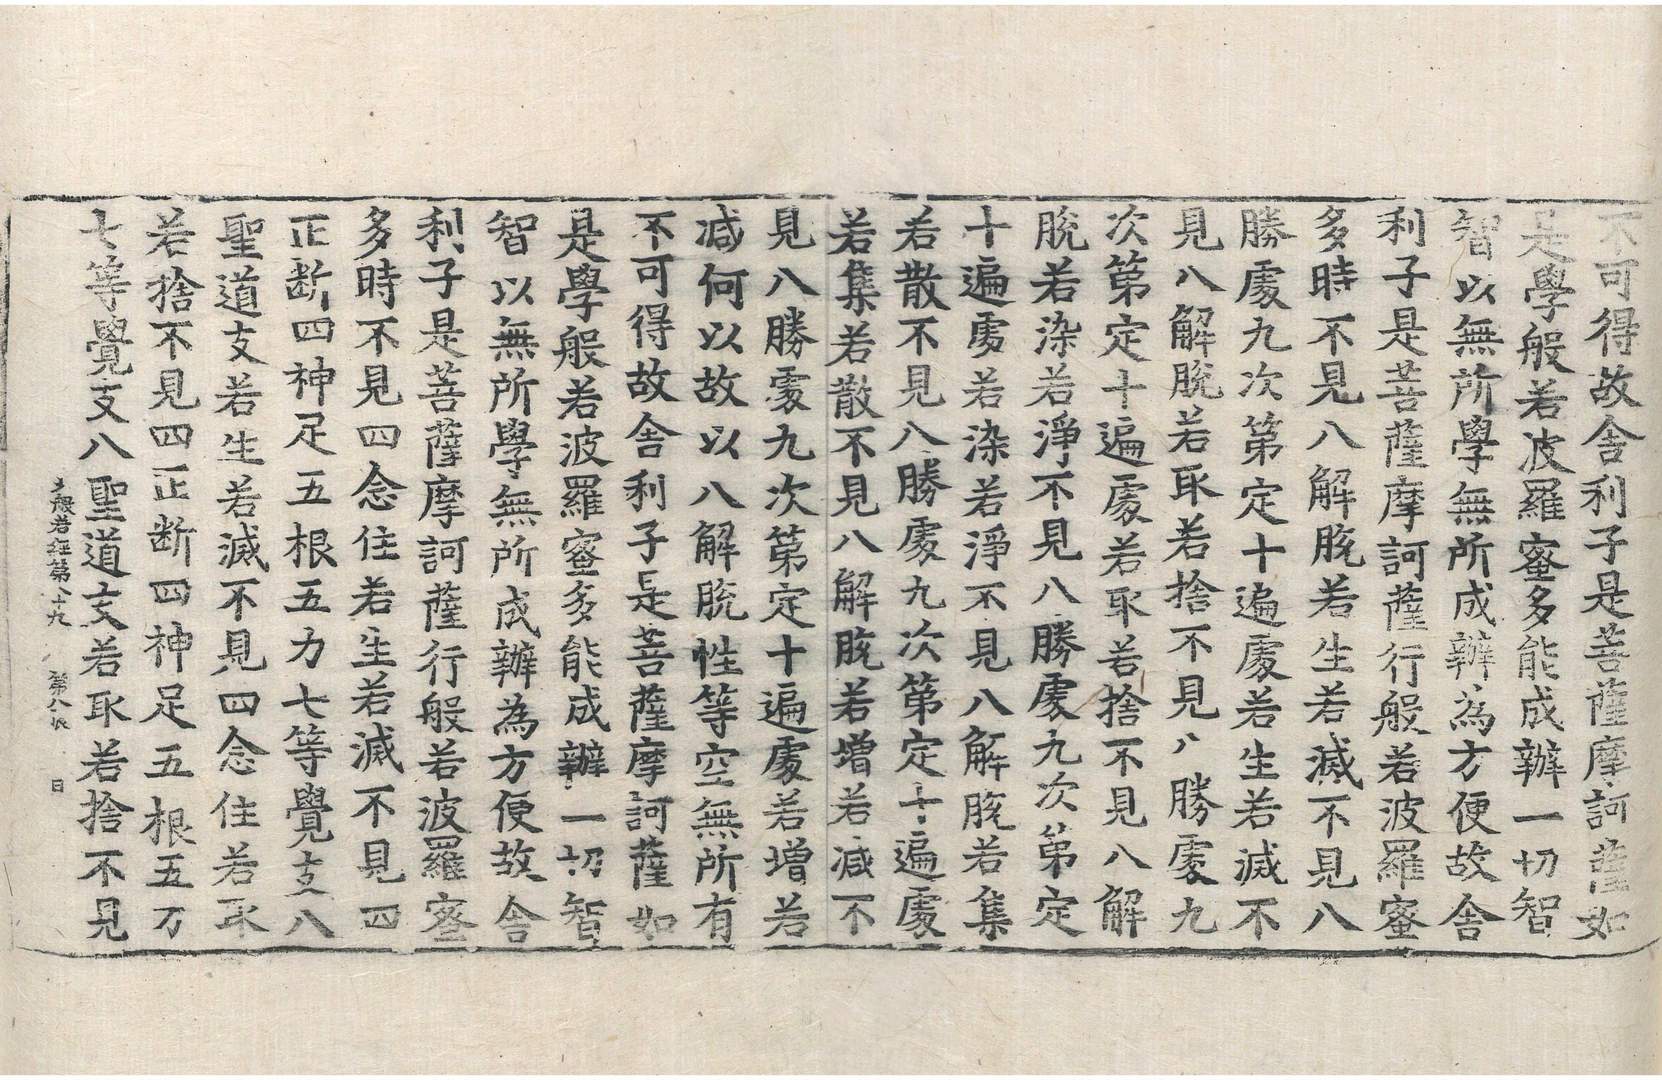 不可得故舍利子是菩薩摩訶薩如
是學般若波羅蜜多能成辦一切智
智以無所學無所成辦為方便故舍
利子是菩薩摩訶薩行般若波羅蜜
多時不見八解脫若生若滅不見八
勝處九次第定十遍處若生若滅不
見八解脫若取若捨不見八勝處九
次第定十遍處若取若捨不見八解
脫若染若淨不見八勝處九次第定
十遍處若染若淨不見八解脫若集
若散不見八勝處九次第定十遍處
若集若散不見八解脫若增若减不
見八勝處九次第定十遍處若增若
减何以故以八解脫性等空無所有
不可得故舍利子是菩薩摩訶薩如
是學般若波羅蜜多能成辦一切智
智以無所學無所成辦為方便故舍
利子是菩薩摩訶薩行般若波羅蜜
多時不見四念住若生若滅不見四
正断四神足五根五力七等覺支八
聖道支若生若滅不見四念住若取
若捨不見四正断四神足五根五力
七等覺支八聖道支若取若捨不見
大般若經第八十九 第八張 日